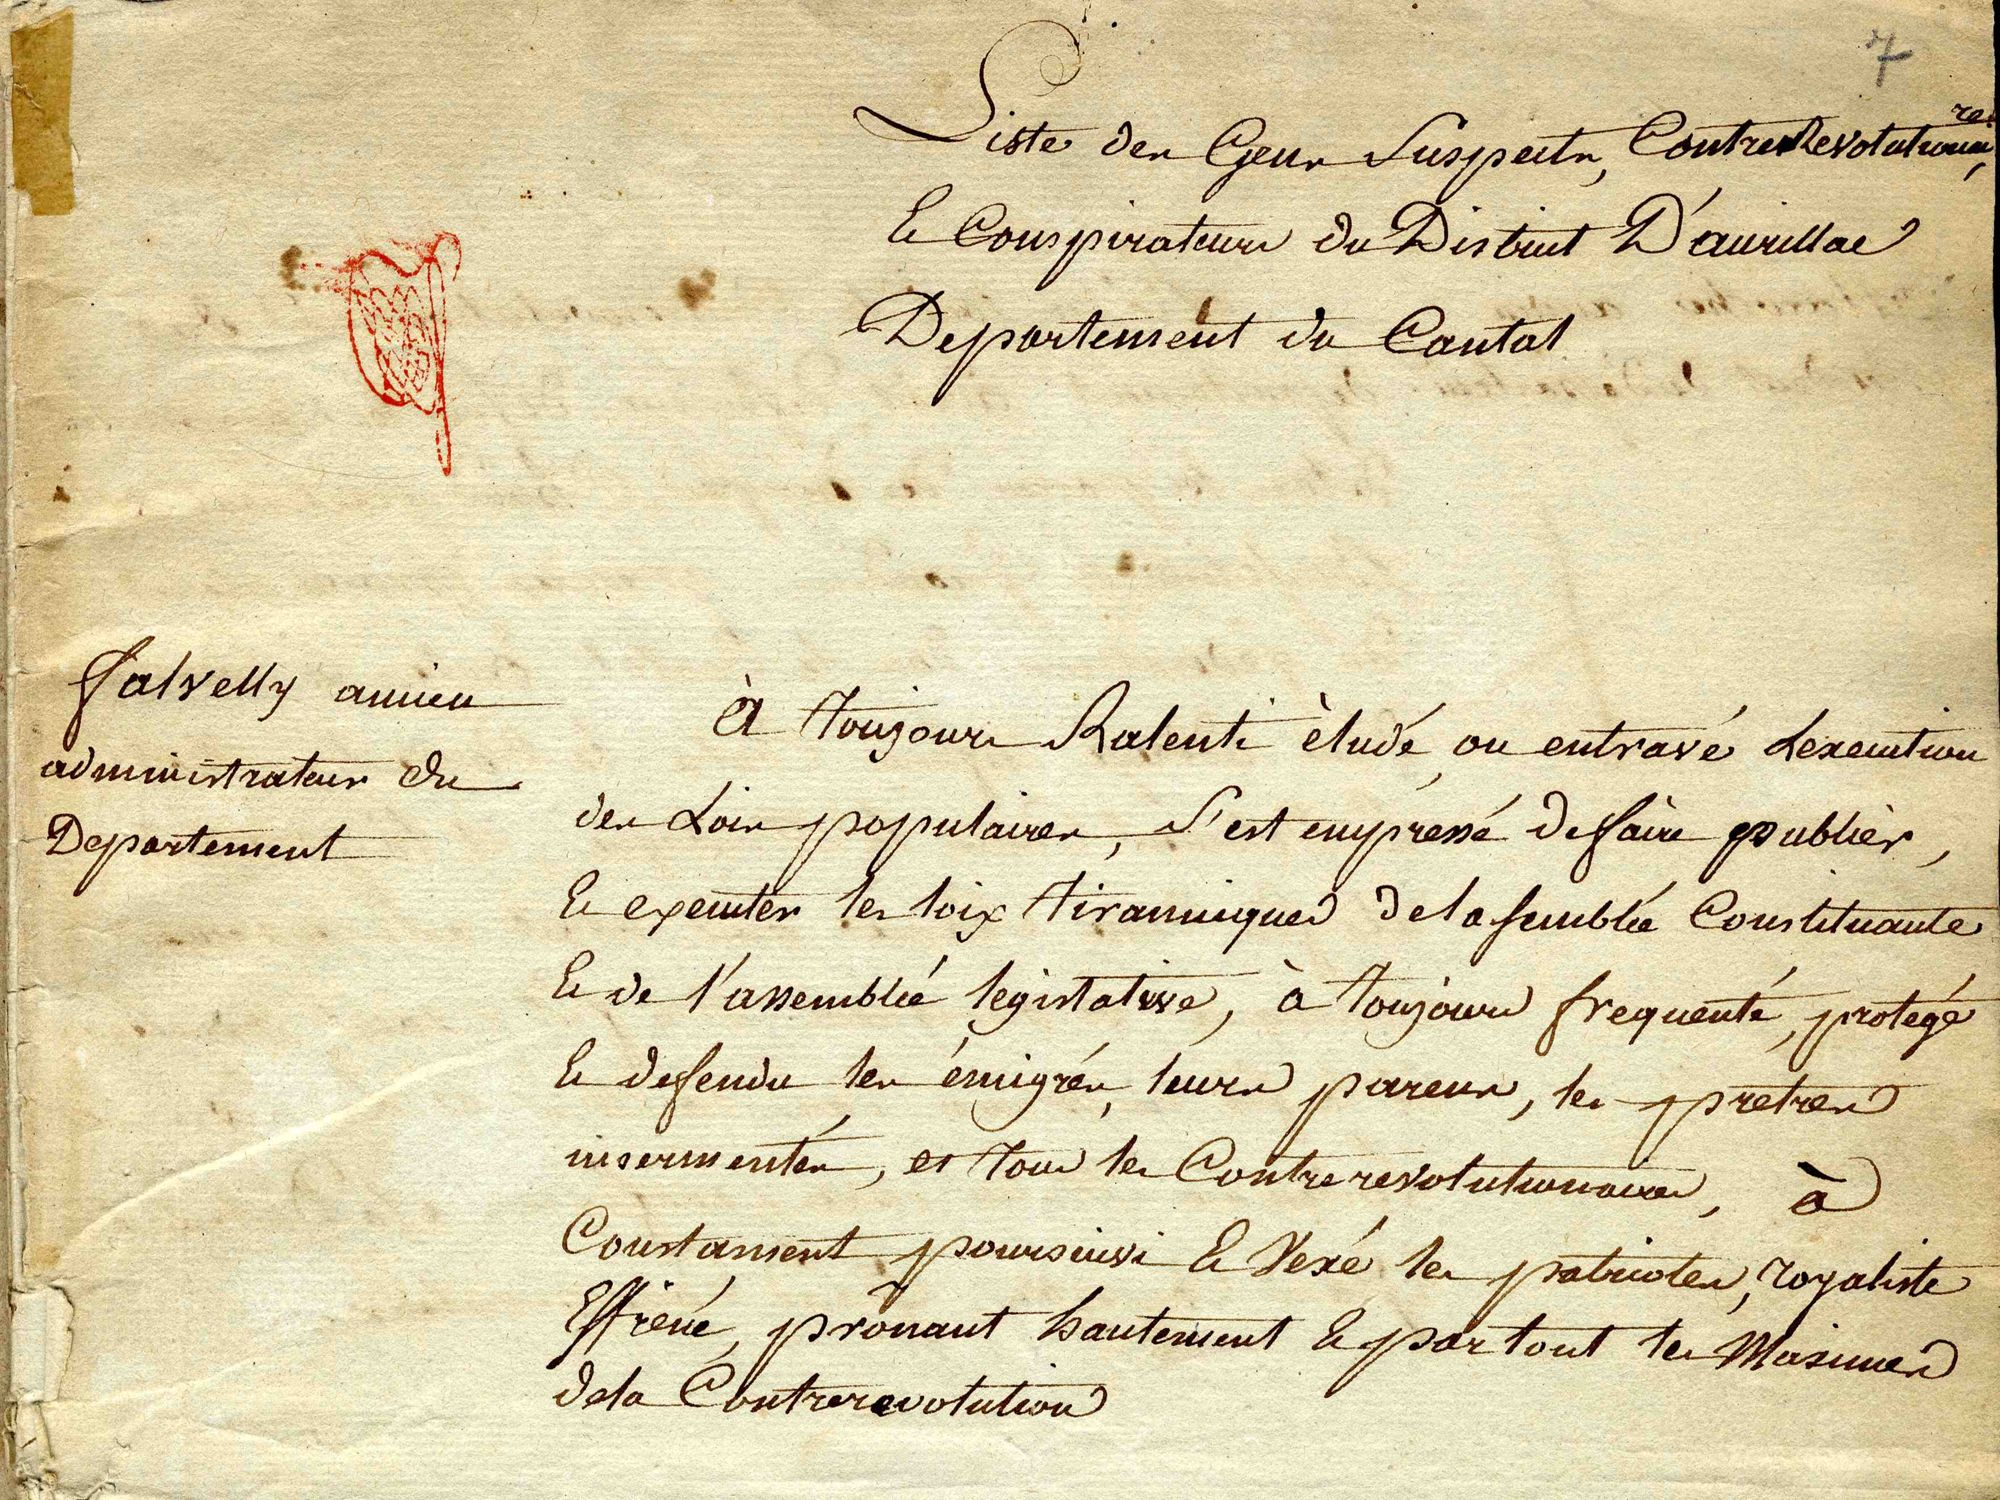 7
Liste des Gens Suspects, Contre Revolutionaires,
Et Conspirateurs du District D'aurillac
Departement du Cantal
falvelly ancien
administrateur du
Departement
à toujours Ralenti éludé, ou entravé Lexecution
des Loix populaires, S'est empressé defaire publièr,
Et executer les loix tiranniques delasemblée Constituante
Et de l'assemblée législative, à toujours frequenté, protégé
Et defendu les émigrés, leurs parens, les prêtres
insermentés, et tous les Contrerevolutionaires, à
Constament poursuivi Et Vexé les patriotes, royaliste
Effrené, prônant hautement Et partout les Maximes
dela Contrerevolution